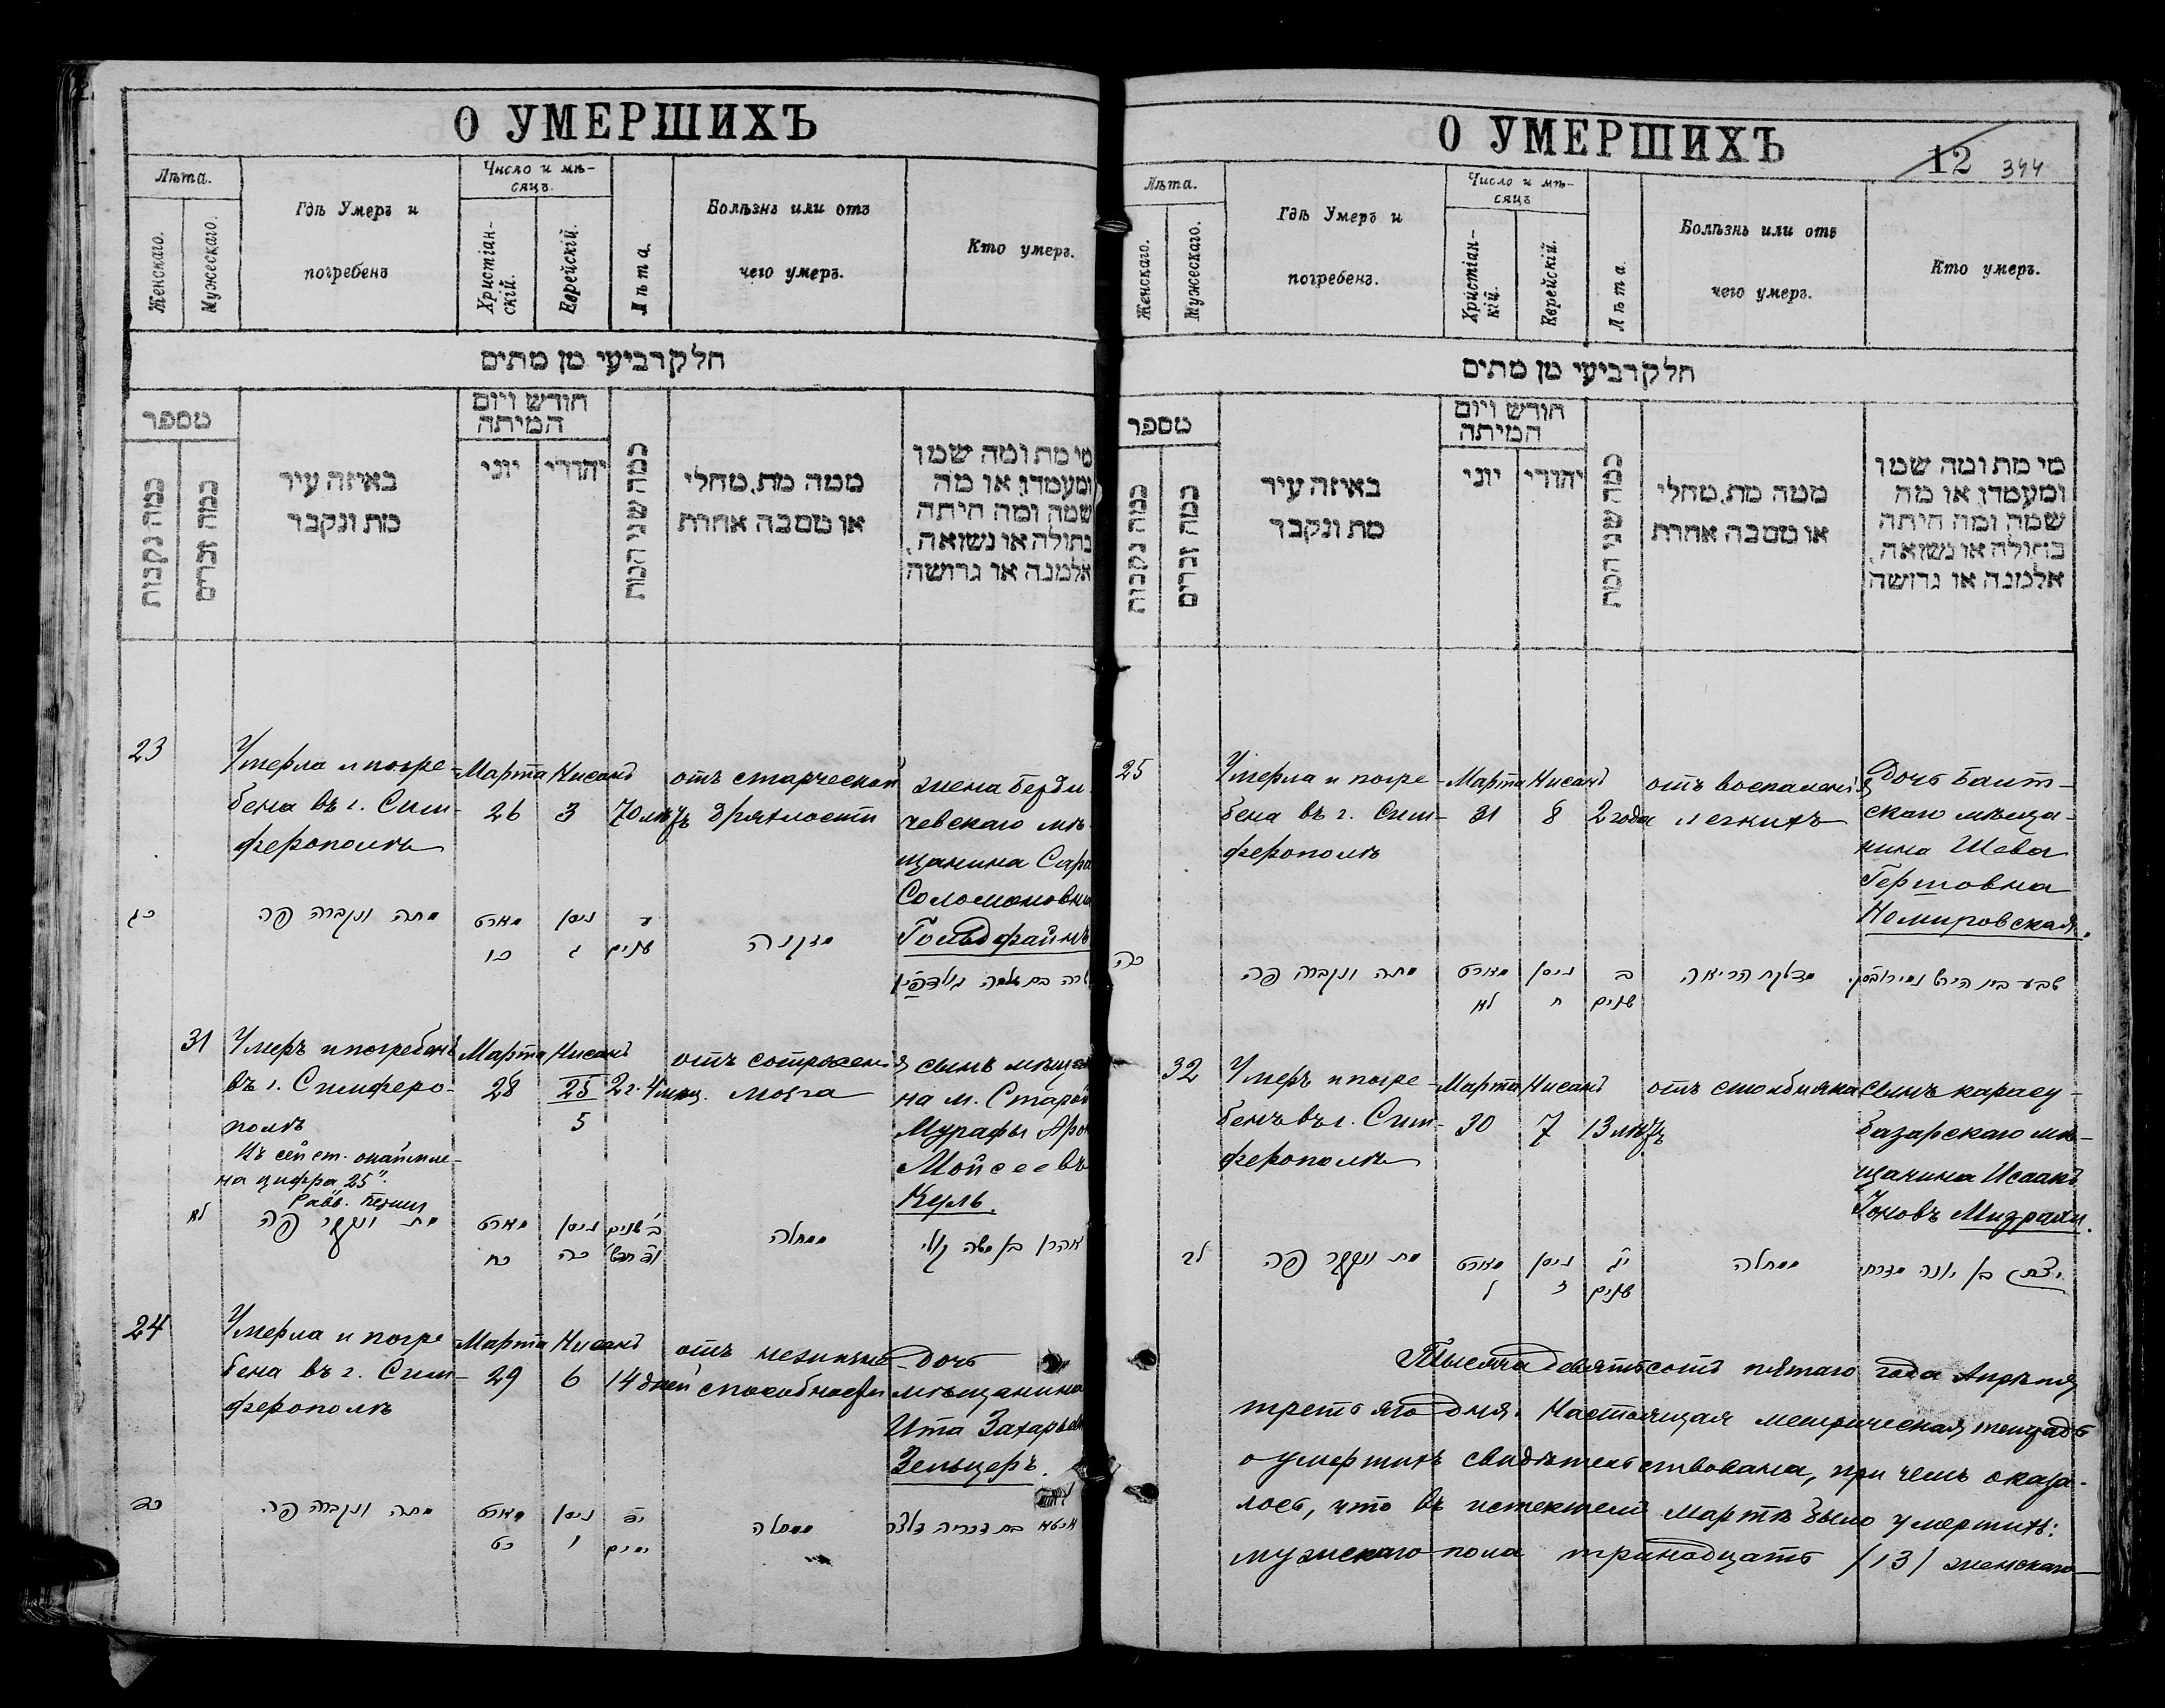 О УМЕРШИХЪ
Лѣта.
Женскаго.
Мужескаго.
Гдѣ Умеръ и
погребенъ
Число и мѣ-
сяцъ.
Христіан-
скій.
Еврейскій.
Лѣта.
Болѣзнь или отъ
чего умеръ.
Кто умеръ.
חלק רביעי מן מתים
מספר
כמה נקבות
כמה זכרים
באיזה עיר
מת ונקבר
חודש ויום
המיתה
יוני
יהודי
כמה שני המת
ממה מת, מחלי
או מסבה אחרת
מי מת ומה שמו
ומעמדו או מה
שמה ומה היתה
בתולה או נשואה,
אלמנה או גרושה
23
Умерла и погре-
бена въ г. Сим-
ферополѣ
Марта
26
Нисанъ
3
70 лѣтъ
отъ старческой
дряхлости
жена Берди-
чевскаго мѣ-
щанина Сара
Соломоновна
Гольдфайнъ
כג
מתה ונקברה פה
מארט
כו
ניסן
ג
ע
שנים
מזקנה
שרה בת שלמה גולדפיין
31
Умеръ и погребенъ
въ г. Симферо-
полѣ
Въ сей ст.
на цифра 25".
Равв.
Марта
28
Нисанъ
25
5
2 г. 4 мѣс.
отъ сотрясенія
мозга
сынъ мѣщан
на м. Старой
Мурафы Арон
Мойсеевъ
Куль.
לא
מת ונקבר פה
מארט
כח
ניסן
כה
ב' שנים
וד' חדש'
ממחלה
אהרן בן משה קולי
24
Умерла и погре-
бена въ г. Сим-
ферополѣ
Марта
29
Нисанъ
6
14 дней
отъ нежизне-
способности
Дочь
мѣщанина
Ита Захарьевн
Зельцеръ.
כד
מתה ונקברה פה
מארט
כט
ניסן
ו
יד
ימים
ממחלה
איטא בת זכריה זלצר
О УМЕРШИХЪ
12 344
Лѣта.
Женскаго.
Мужескаго.
Гдѣ Умеръ и
погребенъ.
Число и мѣ-
сяцъ
Христіан-
кій.
Еврейскій.
Лѣта.
Болѣзнь или отъ
чего умеръ.
Кто умеръ.
חלק רביעי מן מתים
מספר
כמה נקבות
כמה זכרים
באיזה עיר
מת ונקבר
חודש ויום
המיתה
יוני
יהודי
כמה שני המת
ממה מת, מחלי
או מסבה אחרת
מי מת ומה שמו
ומעמדו או מה
שמה ומה היתה
בתולה או נשואה,
אלמנה או גרושה
25
Умерла и погре-
бена въ г. Сим-
ферополѣ
Марта
31
Нисанъ
8
2 года
отъ воспаленія
легкихъ
Дочь Балт-
скаго мѣща-
нина Шева
Гершовна
Немировская.
כה
מתה ונקברה פה
מארט
לא
ניסן
ח
ב
שנים
מדלקת הריאה
שבע בת הירש נמירובסקי
32
Умеръ и погре-
бенъ въ г. Сим-
ферополѣ
Марта
30
Нисанъ
7
13 лѣтъ
отъ столбняка
Сынъ карасу-
базарскаго мѣ-
щанина Исаакъ
Іоновъ Мизрахи.
לב
מת ונקבר פה
מארט
ל
ניסן
ז
יג
שנים
ממחלה
יצחק בן יונה מזרחי
Тысяча девятьсотъ пятаго года Апрѣля
третьяго дня. Настоящая метрическая тетрадь
о умершихъ свидѣтельствована, при чемъ оказа-
лось, что въ истекшемъ Мартѣ было умершихъ:
мужскаго пола тринадцать /13/ женскаго